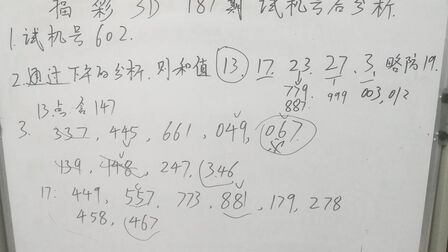 福彩3D 187期试机号后分析.
1.试机号602.
2.通过下午的分析.则和值 13. 17. 23. 27. 3. 略防19.
779 999 003,012
887.
13点含147
3. 337, 445, 661, 049, 067.
139, 148, 247, 346
17: 449, 557, 773, 881, 179, 278
458, 467